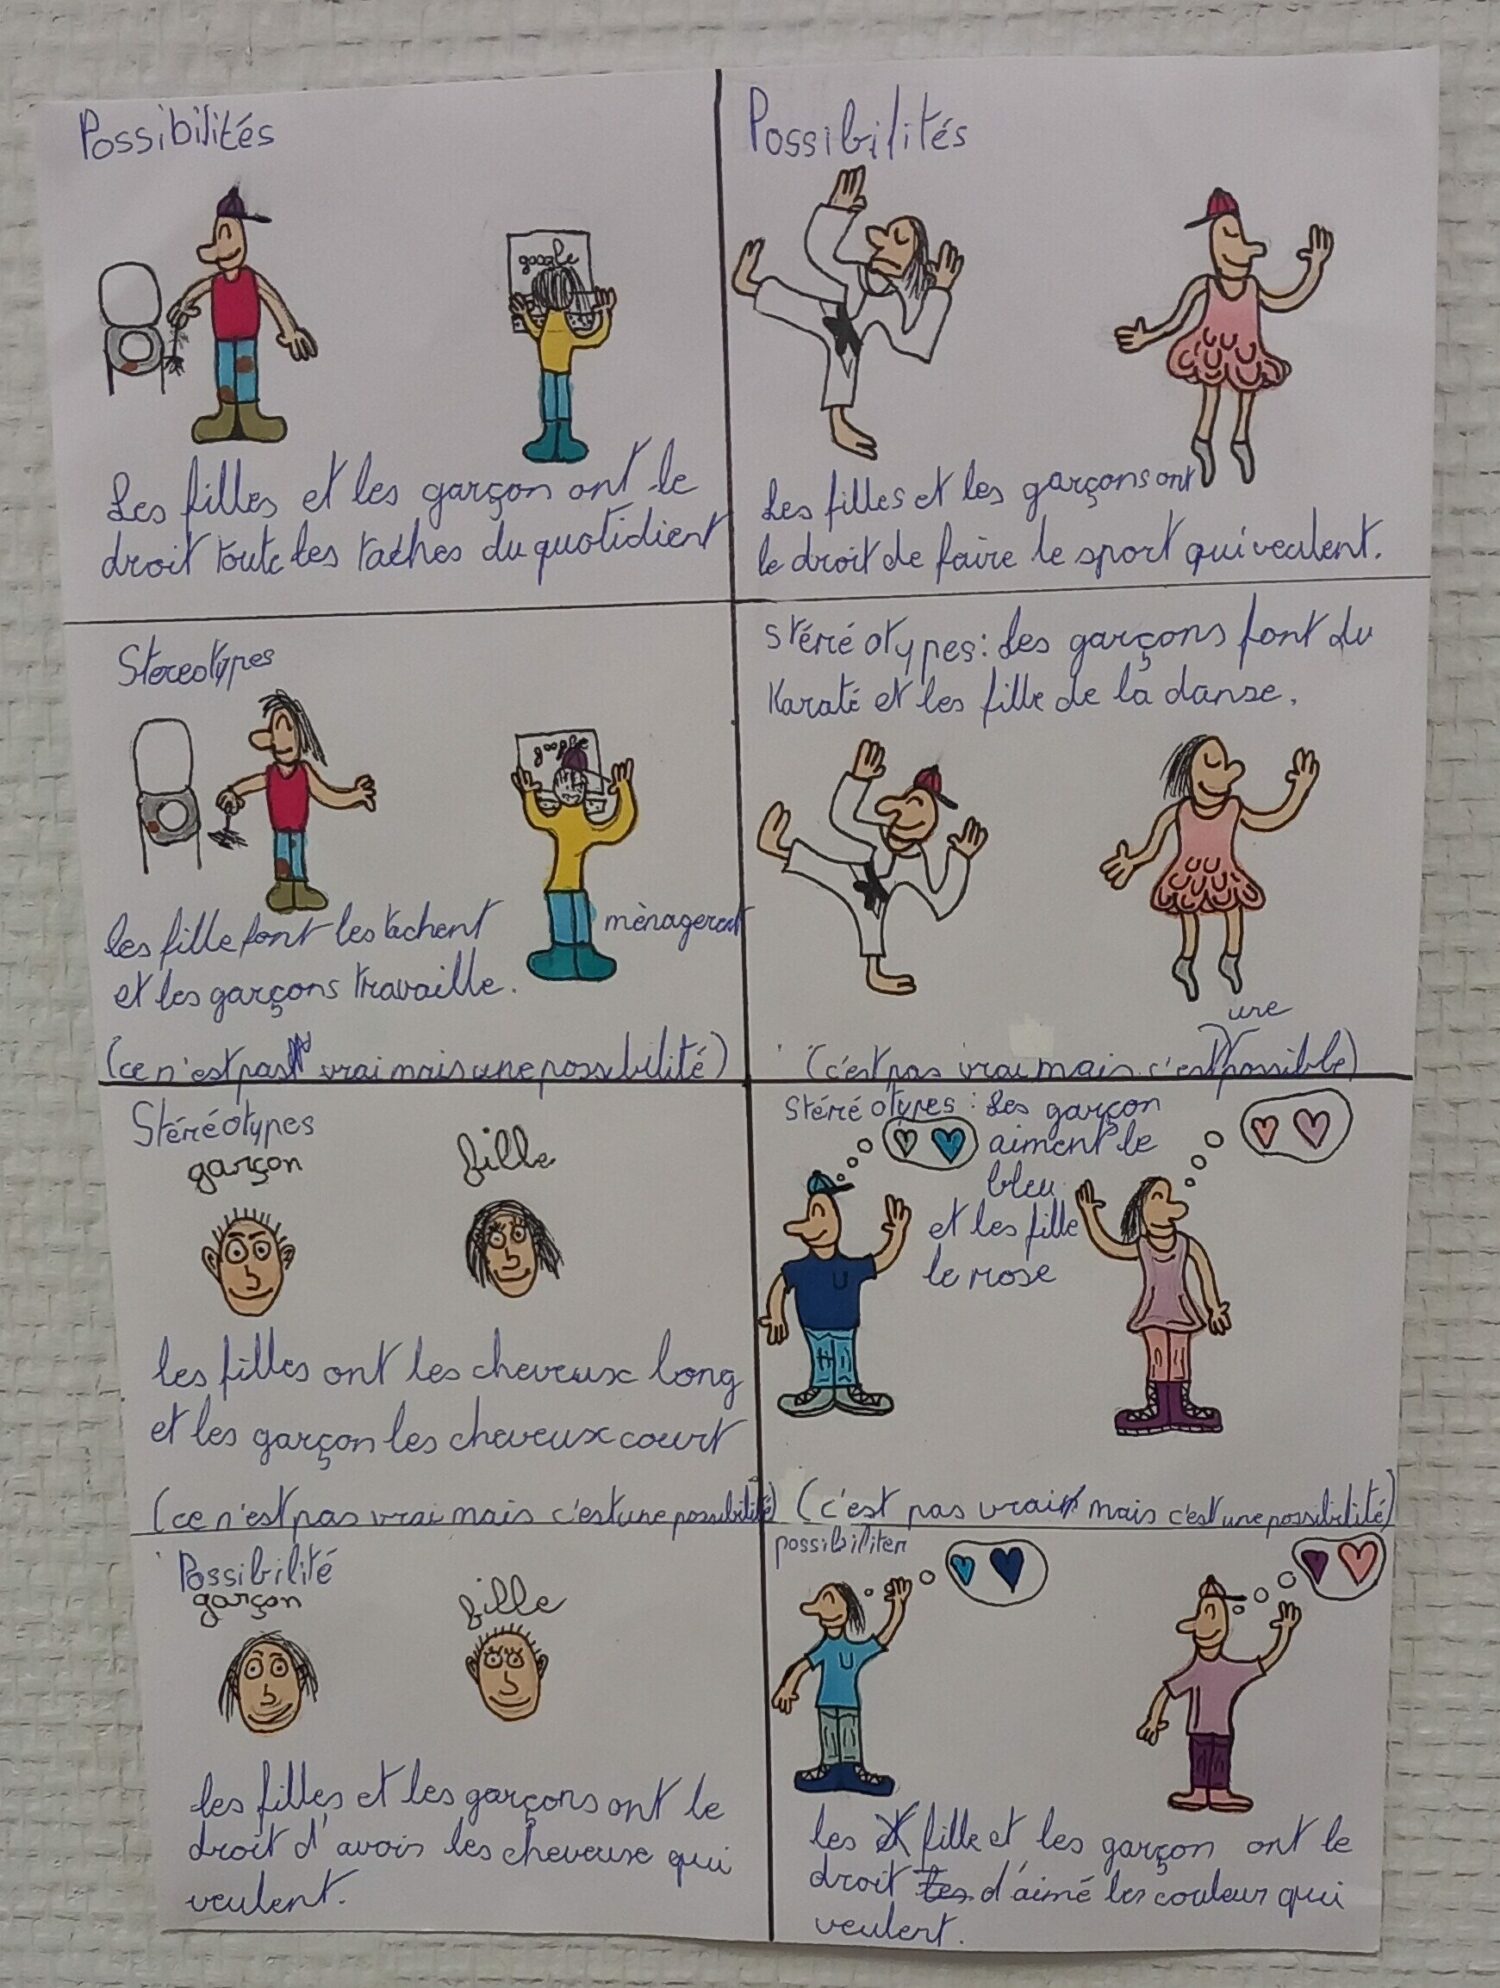 Possibilités
google
Les filles et les garçon ont le
droit toute les taches du quotidient
Possibilités
Les filles et les garçons ont
le droit de faire le sport qui veulent.
Stereotypes
google
les fille font les tachent ménagerent
et les garçons travaille.
(ce n'est pas vrai mais une possibilité)
Stéréotypes : Les garçons font du
Karaté et les fille de la danse.
une
(c'est pas vrai mais c'est possible)
Stéréotypes
garçon
fille
les filles ont les cheveux long
et les garçon les cheveux court
(ce n'est pas vrai mais c'est une possibilité)
Stéréotypes : Les garçon
aiment le
bleu
et les fille
le rose
(c'est pas vrai mais c'est une possibilité)
Possibilité
garçon
fille
les filles et les garçons ont le
droit d'avoir les cheveuse qui
veulent.
possibiliter
les fille et les garçon ont le
droit d'aimé les couleur qui
veulent.